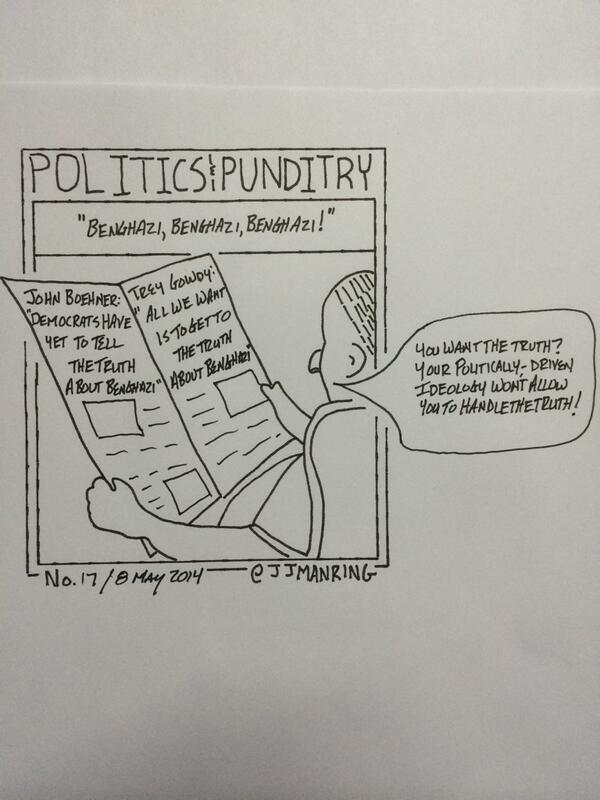 POLITICS & PUNDITRY
"BENGHAZI, BENGHAZI, BENGHAZI!"
JOHN BOEHNER:
"DEMOCRATS HAVE
YET TO TELL
THE TRUTH
ABOUT BENGHAZI"
TREY GOWDY:
"ALL WE WANT
IS TO GET TO
THE TRUTH
ABOUT BENGHAZI"
YOU WANT THE TRUTH?
YOUR POLITICALLY-DRIVEN
IDEOLOGY WONT ALLOW
YOU TO HANDLE THE TRUTH!
No. 17 / 8 MAY 2014
@JJMANRING